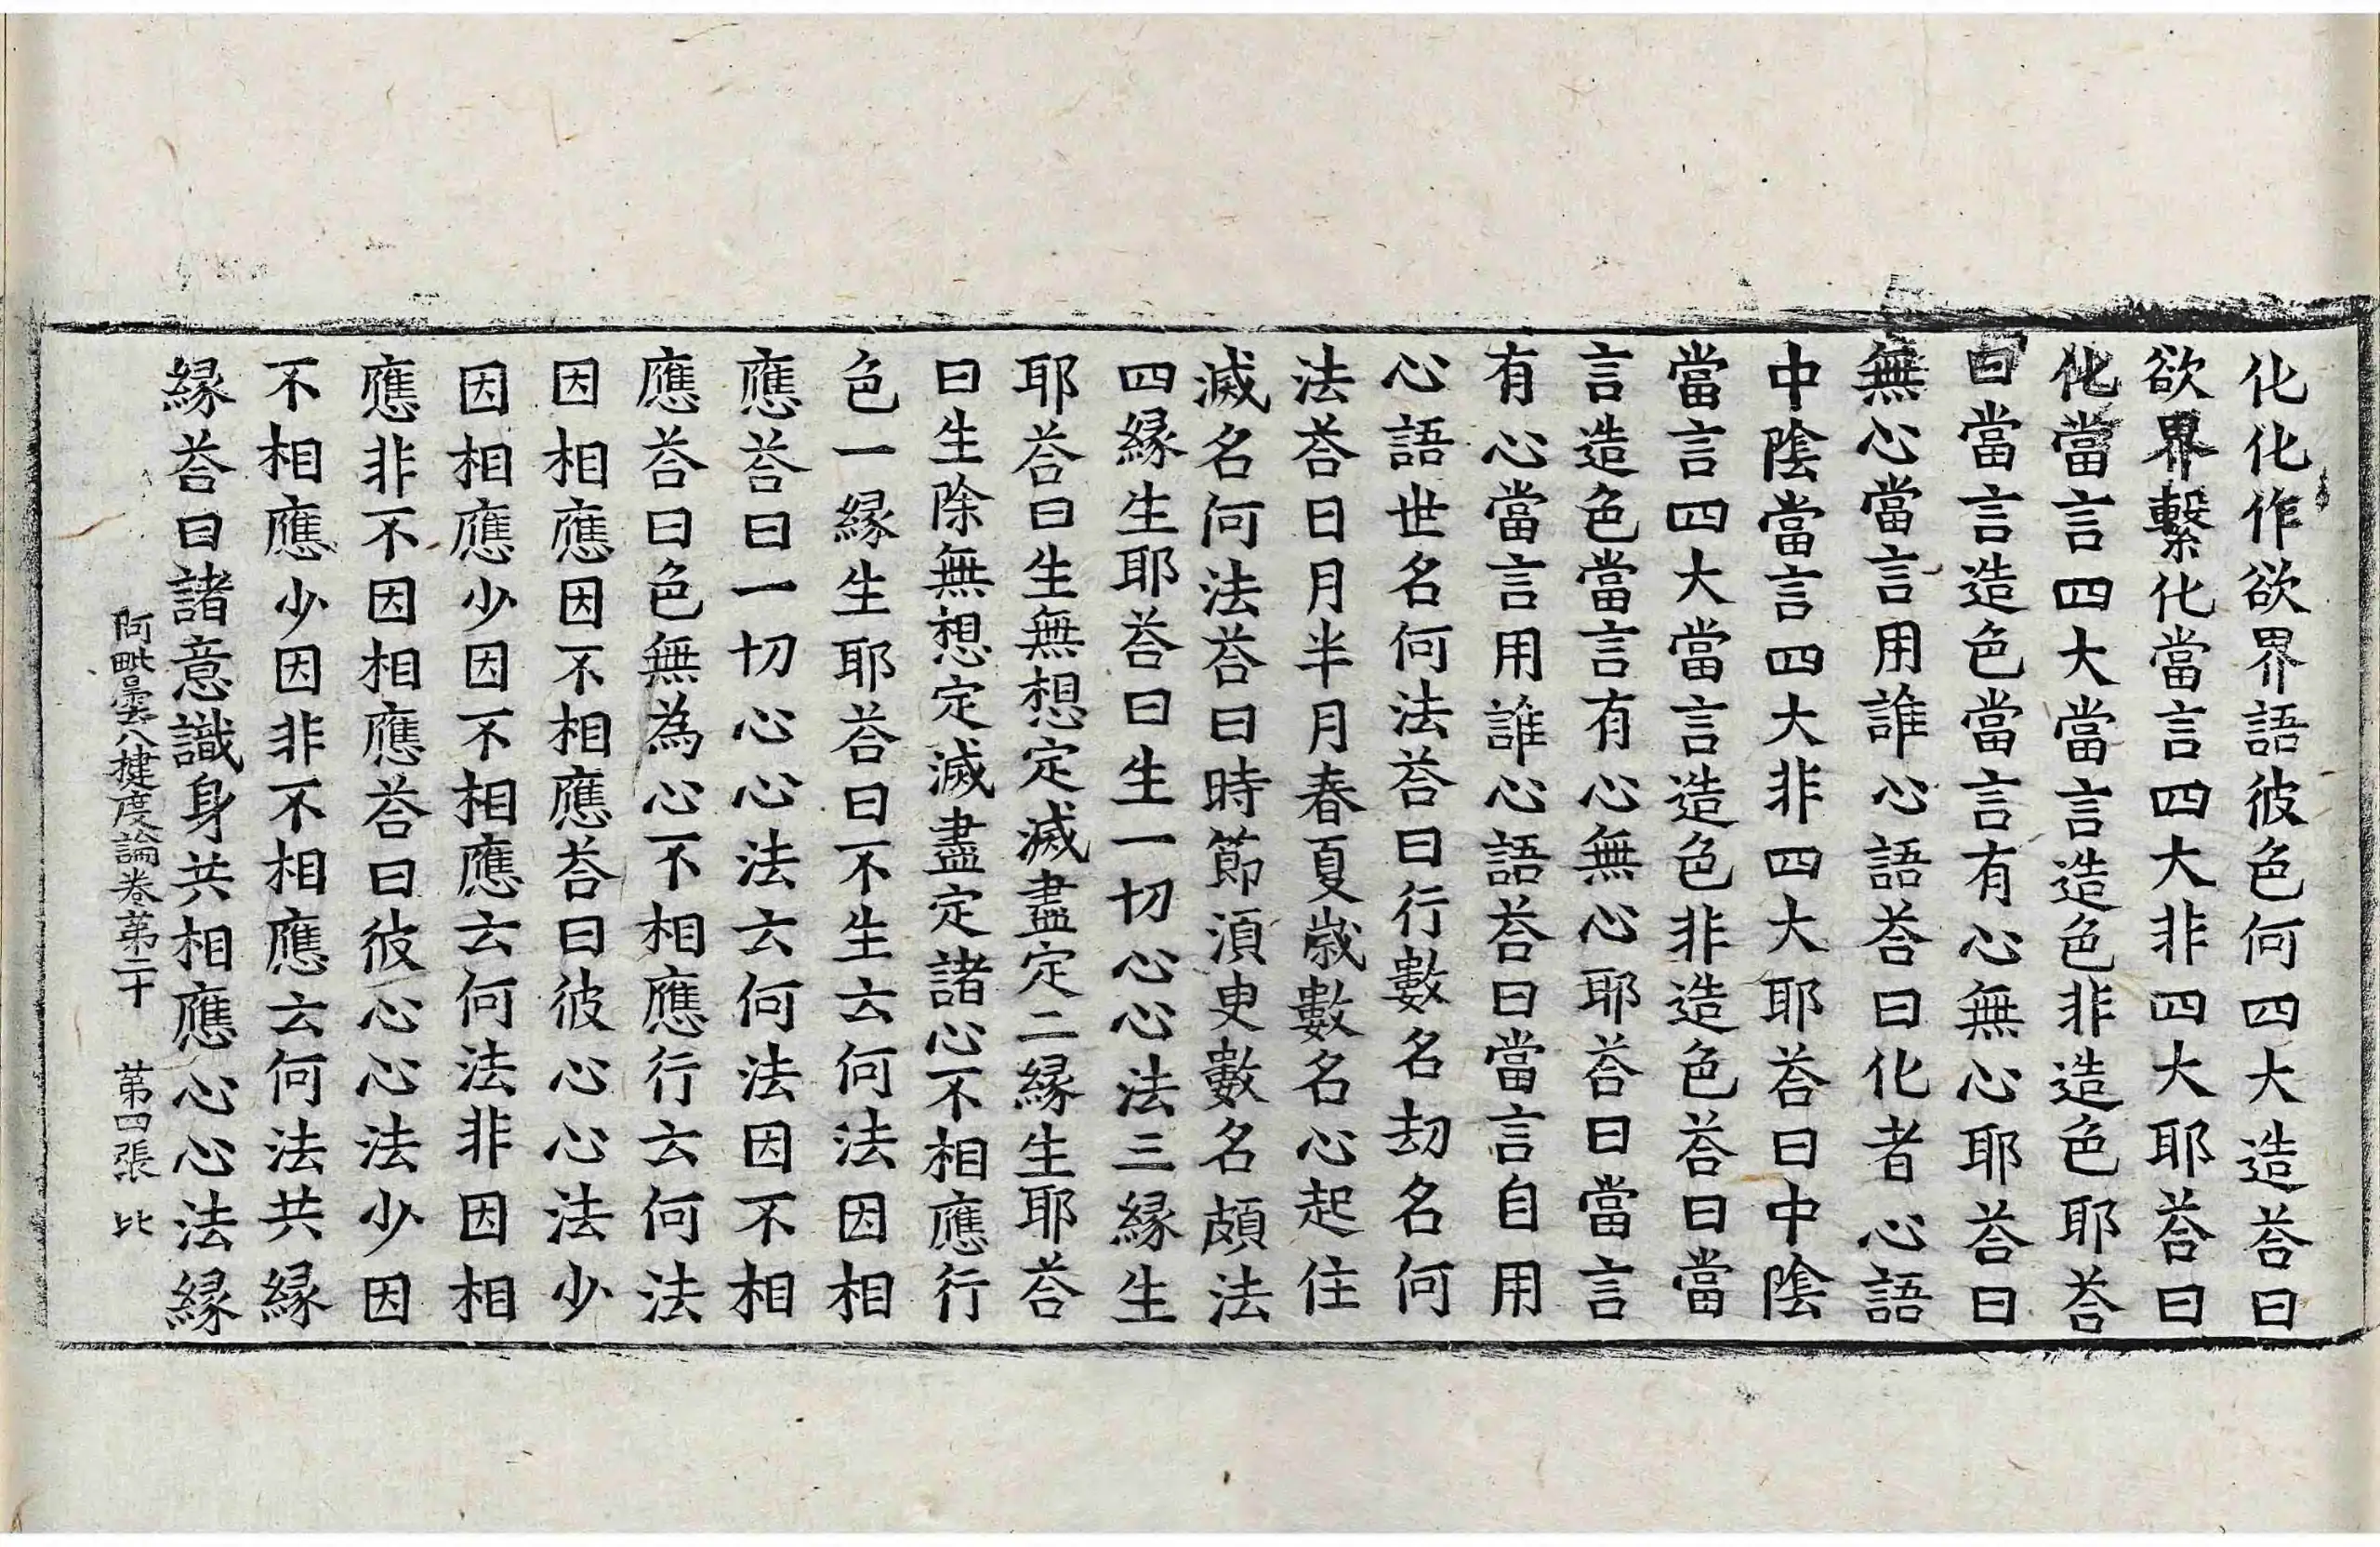 化化作欲界語彼色何四大造荅曰
欲界繫化當言四大非四大耶荅曰
化當言四大當言造色非造色耶荅
曰當言造色當言有心無心耶荅曰
無心當言用誰心語荅曰化者心語
中陰當言四大非四大耶荅曰中陰
當言四大當言造色非造色荅曰當
言造色當言有心無心耶荅曰當言
有心當言用誰心語荅曰當言自用
心語世名何法荅曰行數名劫名何
法荅日月半月春夏歳數名心起住
滅名何法荅曰時節湏臾數名頗法
四縁生耶荅曰生一切心心法三縁生
耶荅曰生無想定滅盡定二縁生耶荅
曰生除無想定滅盡定諸心不相應行
色一縁生耶荅曰不生云何法因相
應荅曰一切心心法云何法因不相
應荅曰色無為心不相應行云何法
因相應因不相應荅曰彼心心法少
因相應少因不相應云何法非因相
應非不因相應荅曰彼心心法少因
不相應少因非不相應云何法共縁
縁荅曰諸意識身共相應心心法縁
阿毗曇八揵度論卷第二十 第四張 比